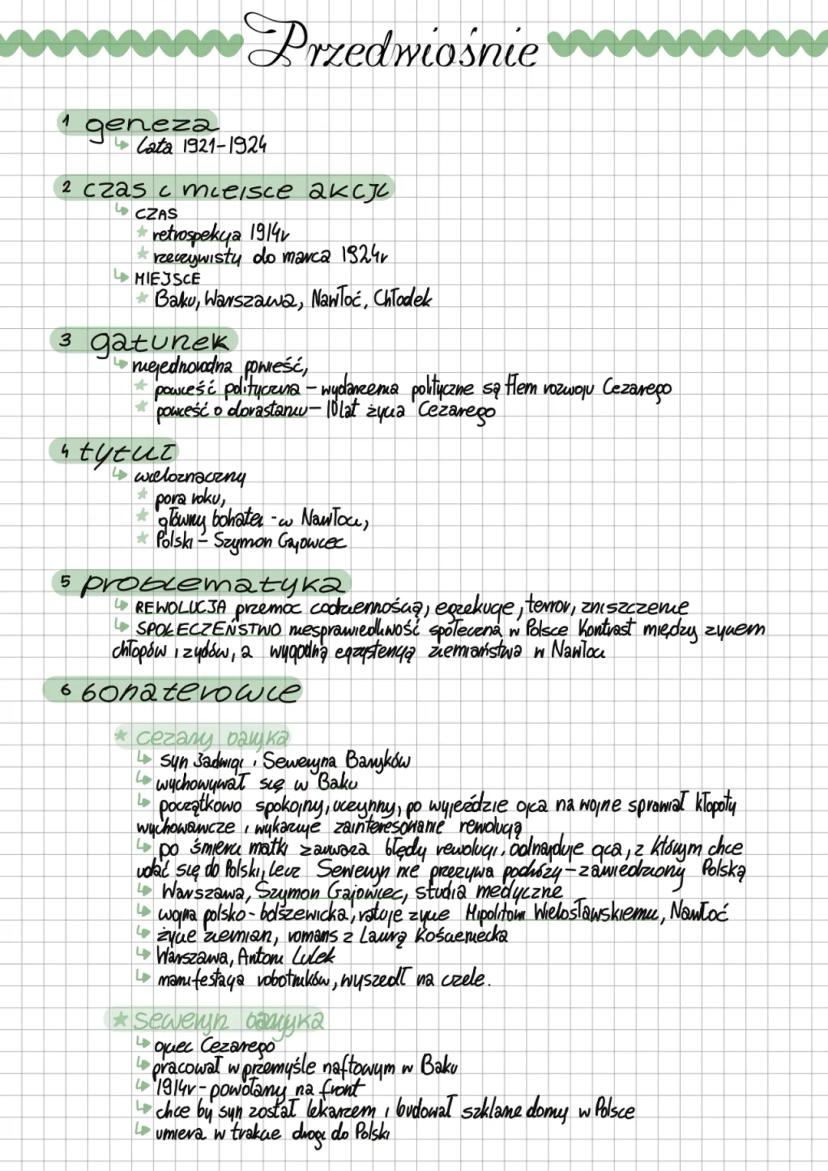 Przedwiośnie
1 geneza
↳ lata 1921-1924
2 czas i miejsce akcji
↳ CZAS
* retrospekcja 1914r
* rzeczywisty do marca 1924r
↳ MIEJSCE
* Baku, Warszawa, Nawłoć, Chłodek
3 gatunek
↳ niejednorodna powieść,
* powieść polityczna – wydarzenia polityczne są tłem rozwoju Cezarego
* powieść o dorastaniu – 10 lat życia Cezarego
4 tytuł
↳ wieloznaczny
* pora roku,
* główny bohater - w Nawłoci,
* Polski – Szymon Gajowiec
5 problematyka
↳ REWOLUCJA przemoc codziennością, egzekucje, terror, zniszczenie
↳ SPOŁECZEŃSTWO niesprawiedliwość społeczna w Polsce Kontrast między życiem
chłopów i żydów, a wygodną egzystencją ziemiaństwa w Nawłoci
6 bohaterowie
* cezary baryka
↳ syn Jadwigi i Seweryna Baryków
↳ wychowywał się w Baku
↳ początkowo spokojny, uczynny, po wyjeździe ojca na wojne sprawiał kłopoty
wychowawcze i wykazuje zainteresowanie rewolucją
↳ po śmierci matki zauważa błędy rewolucji, odnajduje ojca, z którym chce
udać się do Polski, lecz Seweryn nie przeżywa podróży – zawiedziony Polską
↳ Warszawa, Szymon Gajowiec, studia medyczne
↳ wojna polsko - bolszewicka, ratuje życie Hipolitowi Wielosławskiemu, Nawłoć
↳ życie ziemian, romans z Laurą Kościeniecką
↳ Warszawa, Antoni Lulek
↳ manifestacja robotników, wyszedł na czele.
* seweryn baryka
↳ ojciec Cezarego
↳ pracował w przemyśle naftowym w Baku
↳ 1914r - powołany na front
↳ chce by syn został lekarzem i budował szklane domy w Polsce
↳ umiera w trakcie drogi do Polski